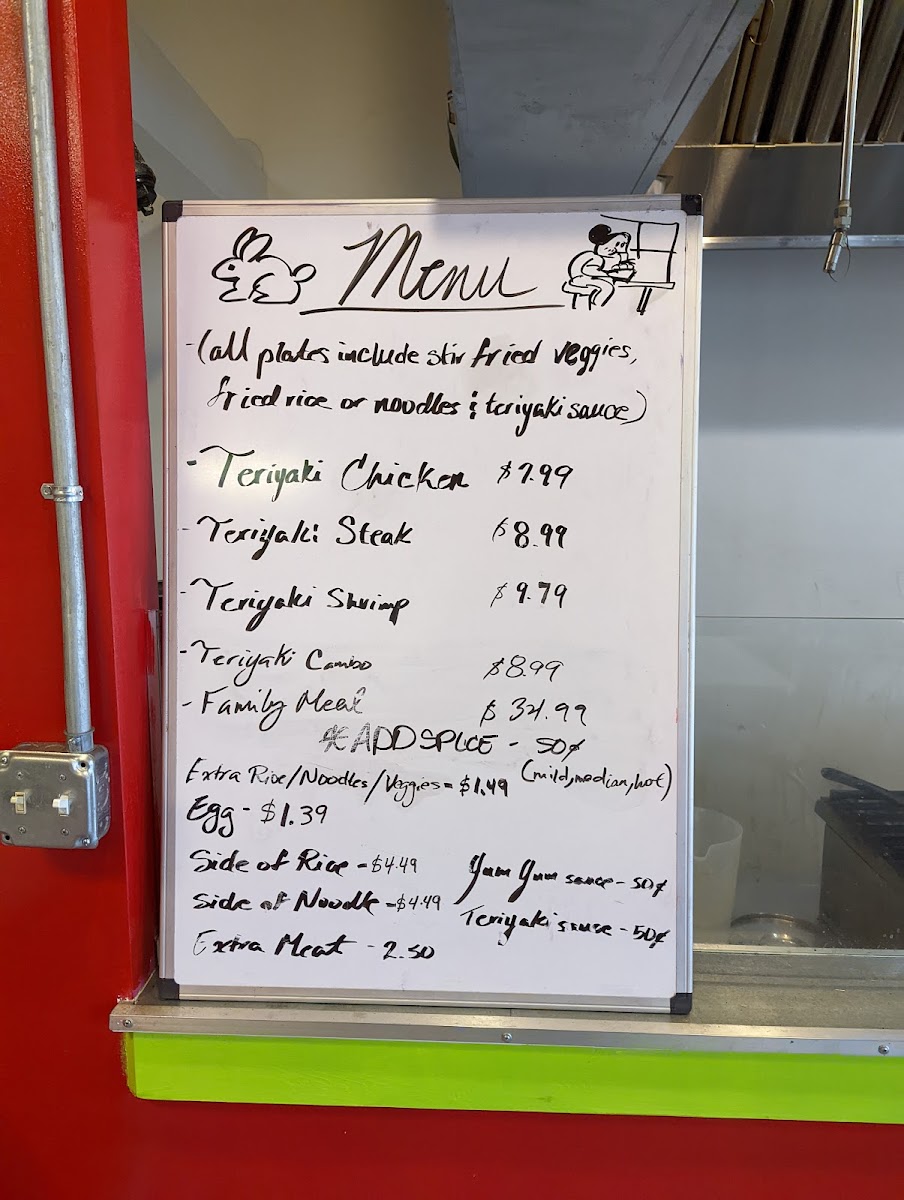 Menu
- (all plates include stir fried veggies,
fried rice or noodles & teriyaki sauce)
- Teriyaki Chicken $7.99
- Teriyaki Steak $8.99
- Teriyaki Shrimp $9.79
- Teriyaki Combo $8.99
- Family Meal $34.99
* ADD SPICE - 50¢
(mild, median, hot)
Extra Rice/Noodles/Veggies = $1.49
Egg - $1.39
Side of Rice - $4.49
Side of Noodle - $4.49
Extra Meat - 2.50
Yum Yum sauce - 50¢
Teriyaki sauce - 50¢